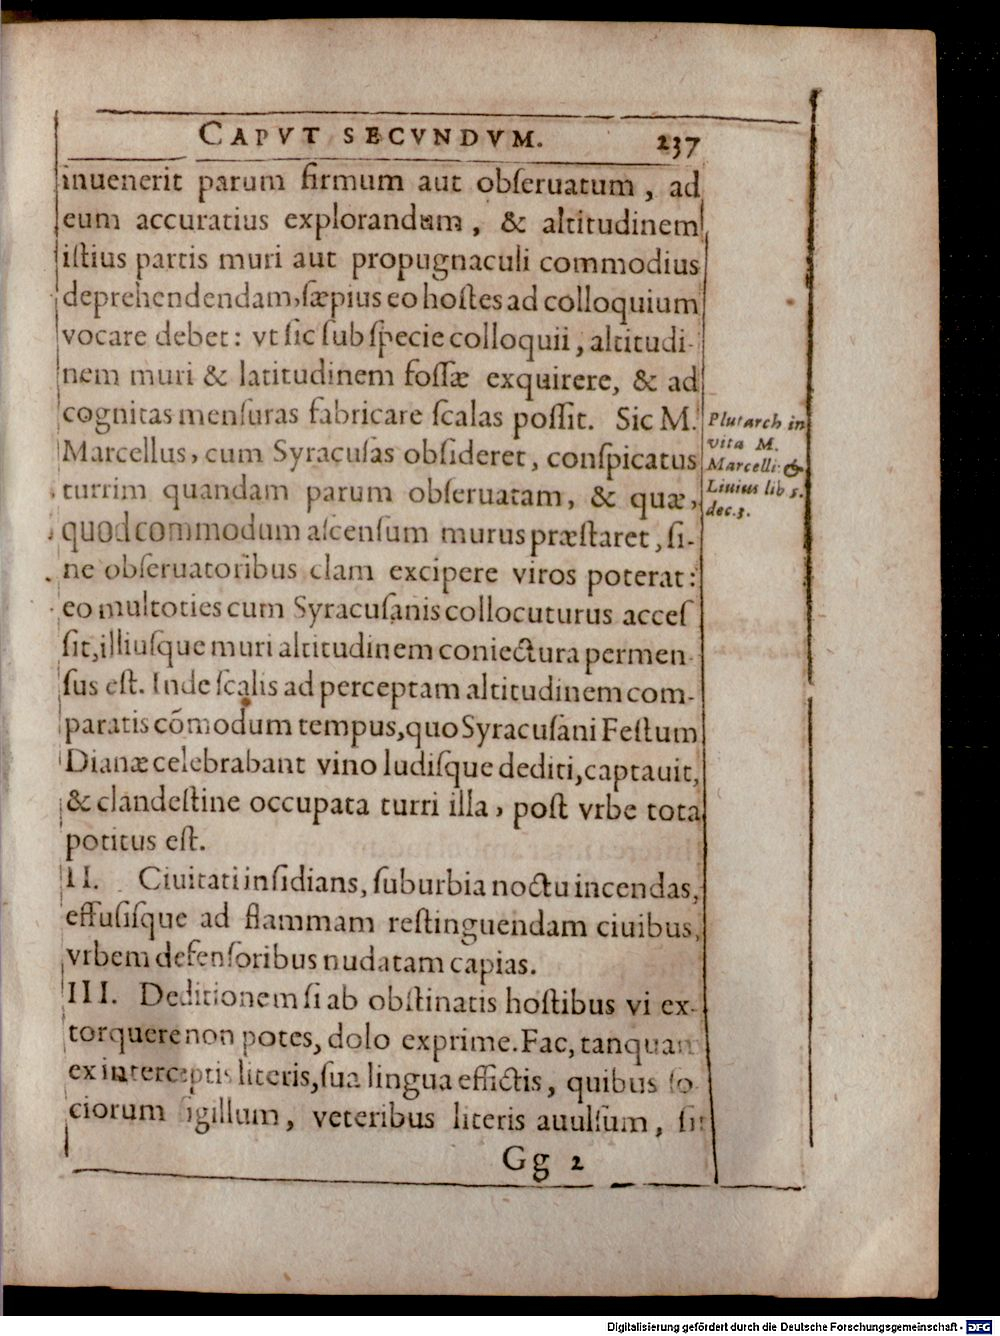 CAPVT SECVNDVM. 237
inuenerit parum firmum aut obſeruatum, ad
eum accuratius explorandum, & altitudinem
iſtius partis muri aut propugnaculi commodius
deprehendendam, ſæpius eo hoſtes ad colloquium
vocare debet: vt ſic ſub ſpecie colloquii, altitudi-
nem muri & latitudinem foſſæ exquirere, & ad
cognitas menſuras fabricare ſcalas poſſit. Sic M.
Marcellus, cum Syracuſas obſideret, conſpicatus
turrim quandam parum obſeruatam, & quæ,
quod commodum aſcenſum murus præſtaret, ſi-
ne obſeruatoribus clam excipere viros poterat:
eo multoties cum Syracuſanis collocuturus acceſ
ſit, illiuſque muri altitudinem coniectura permen-
ſus eſt. Inde ſcalis ad perceptam altitudinem com-
paratis cõmodum tempus, quo Syracuſani Feſtum
Dianæ celebrabant vino ludiſque dediti, captauit,
& clandeſtine occupata turri illa, poſt vrbe tota
potitus eſt.
Plutarch in
vita M.
Marcelli: &
Liuius lib 5.
dec. 3.
II. Ciuitati inſidians, ſuburbia noctu incendas,
effuſiſque ad flammam reſtinguendam ciuibus,
vrbem defenſoribus nudatam capias.
III. Deditionem ſi ab obſtinatis hoſtibus vi ex-
torquere non potes, dolo exprime. Fac, tanquam
ex interceptis literis, ſua lingua effictis, quibus ſo-
ciorum ſigillum, veteribus literis auulſum, ſit
Gg 2
Digitalisierung gefördert durch die Deutsche Forschungsgemeinschaft - DFG